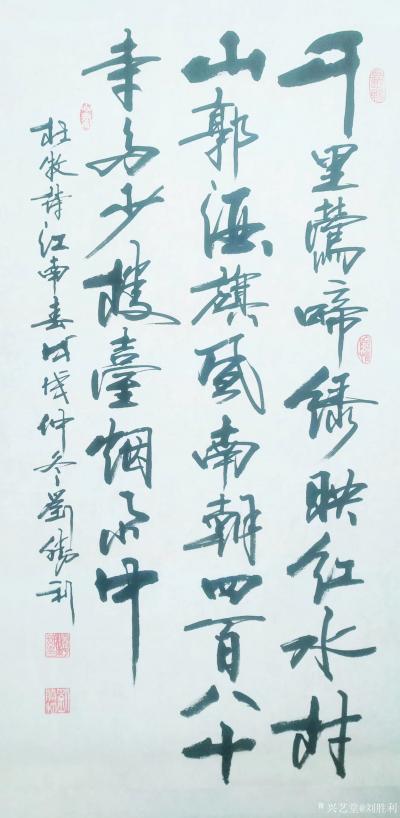 千里鶯啼绿映红水村
山郭酒旗风南朝四百八十
寺多少楼臺烟雨中
杜牧诗江南春戊戌仲冬劉勝利
兴艺堂@刘胜利